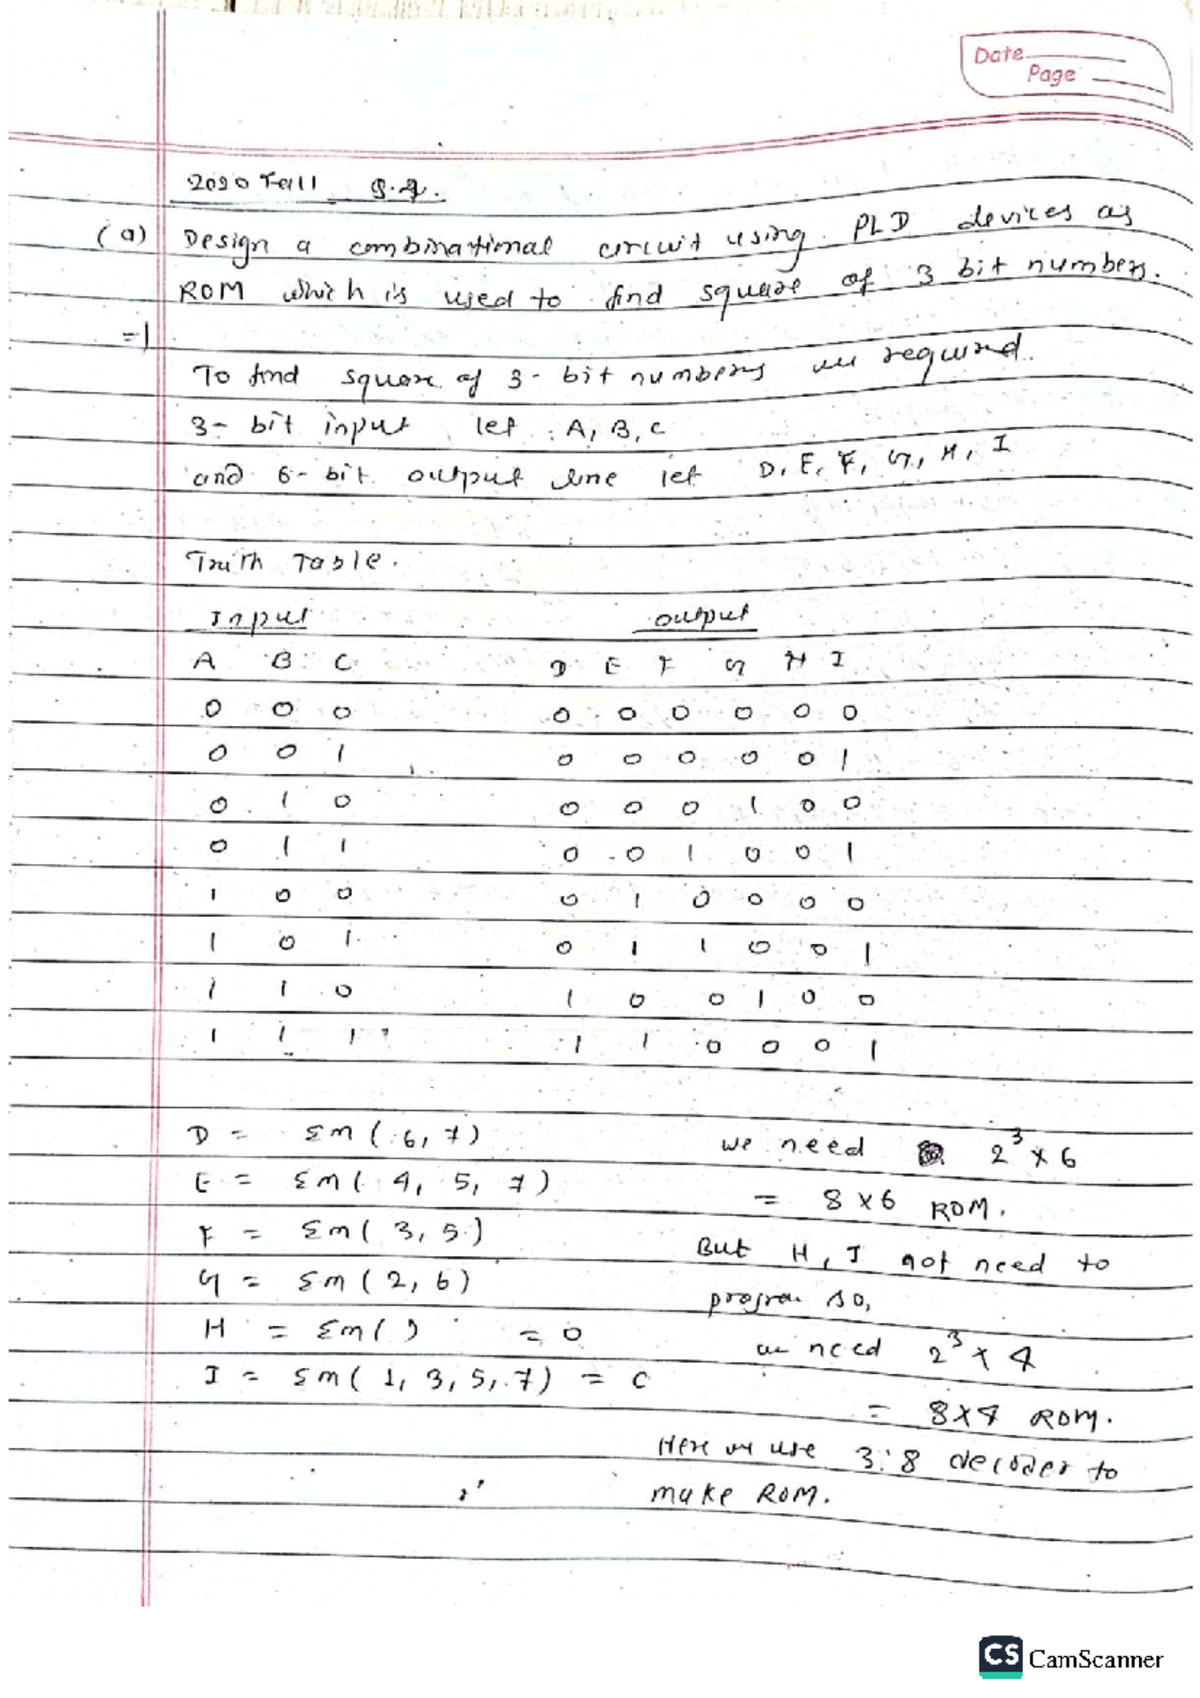 Date
Page
2020 Fall
(a) Design a combinational circuit using PLD devices as
ROM which is used to find square of 3 bit numbers.
=)
To find square of 3-bit numbers we required
3-bit input let A, B, C
and 6-bit output line let D, E, F, G, H, I
Truth Table.
Input output
A B C D E F G H I
0 0 0 0 0 0 0 0 0
0 0 1 0 0 0 0 0 1
0 1 0 0 0 0 1 0 0
0 1 1 0 0 1 0 0 1
1 0 0 0 1 0 0 0 0
1 0 1 0 1 1 0 0 1
1 1 0 1 0 0 1 0 0
1 1 1 1 1 0 0 0 1
D = Σm(6, 7) we need 2³ × 6
E = Σm(4, 5, 7) = 8 × 6 ROM.
F = Σm(3, 5) But H, I not need to
G = Σm(2, 6) program so,
H = Σm( ) = 0 we need 2³ × 4
I = Σm(1, 3, 5, 7) = C
= 8×4 ROM.
Here we use 3:8 decoder to
make ROM.
CS CamScanner